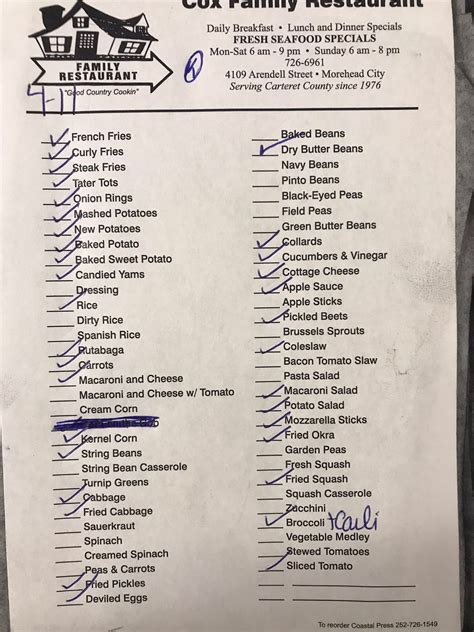 Cox Family Restaurant
Daily Breakfast • Lunch and Dinner Specials
FRESH SEAFOOD SPECIALS
Mon-Sat 6 am - 9 pm • Sunday 6 am - 8 pm
726-6961
4109 Arendell Street • Morehead City
Serving Carteret County since 1976
FAMILY
RESTAURANT
"Good Country Cookin"
4-17
French Fries
Curly Fries
Steak Fries
Tater Tots
Onion Rings
Mashed Potatoes
New Potatoes
Baked Potato
Baked Sweet Potato
Candied Yams
Dressing
Rice
Dirty Rice
Spanish Rice
Rutabaga
Carrots
Macaroni and Cheese
Macaroni and Cheese w/ Tomato
Cream Corn
Kernel Corn
String Beans
String Bean Casserole
Turnip Greens
Cabbage
Fried Cabbage
Sauerkraut
Spinach
Creamed Spinach
Peas & Carrots
Fried Pickles
Deviled Eggs
Baked Beans
Dry Butter Beans
Navy Beans
Pinto Beans
Black-Eyed Peas
Field Peas
Green Butter Beans
Collards
Cucumbers & Vinegar
Cottage Cheese
Apple Sauce
Apple Sticks
Pickled Beets
Brussels Sprouts
Coleslaw
Bacon Tomato Slaw
Pasta Salad
Macaroni Salad
Potato Salad
Mozzarella Sticks
Fried Okra
Garden Peas
Fresh Squash
Fried Squash
Squash Casserole
Zucchini
Broccoli + Cauli
Vegetable Medley
Stewed Tomatoes
Sliced Tomato
To reorder Coastal Press 252-726-1549